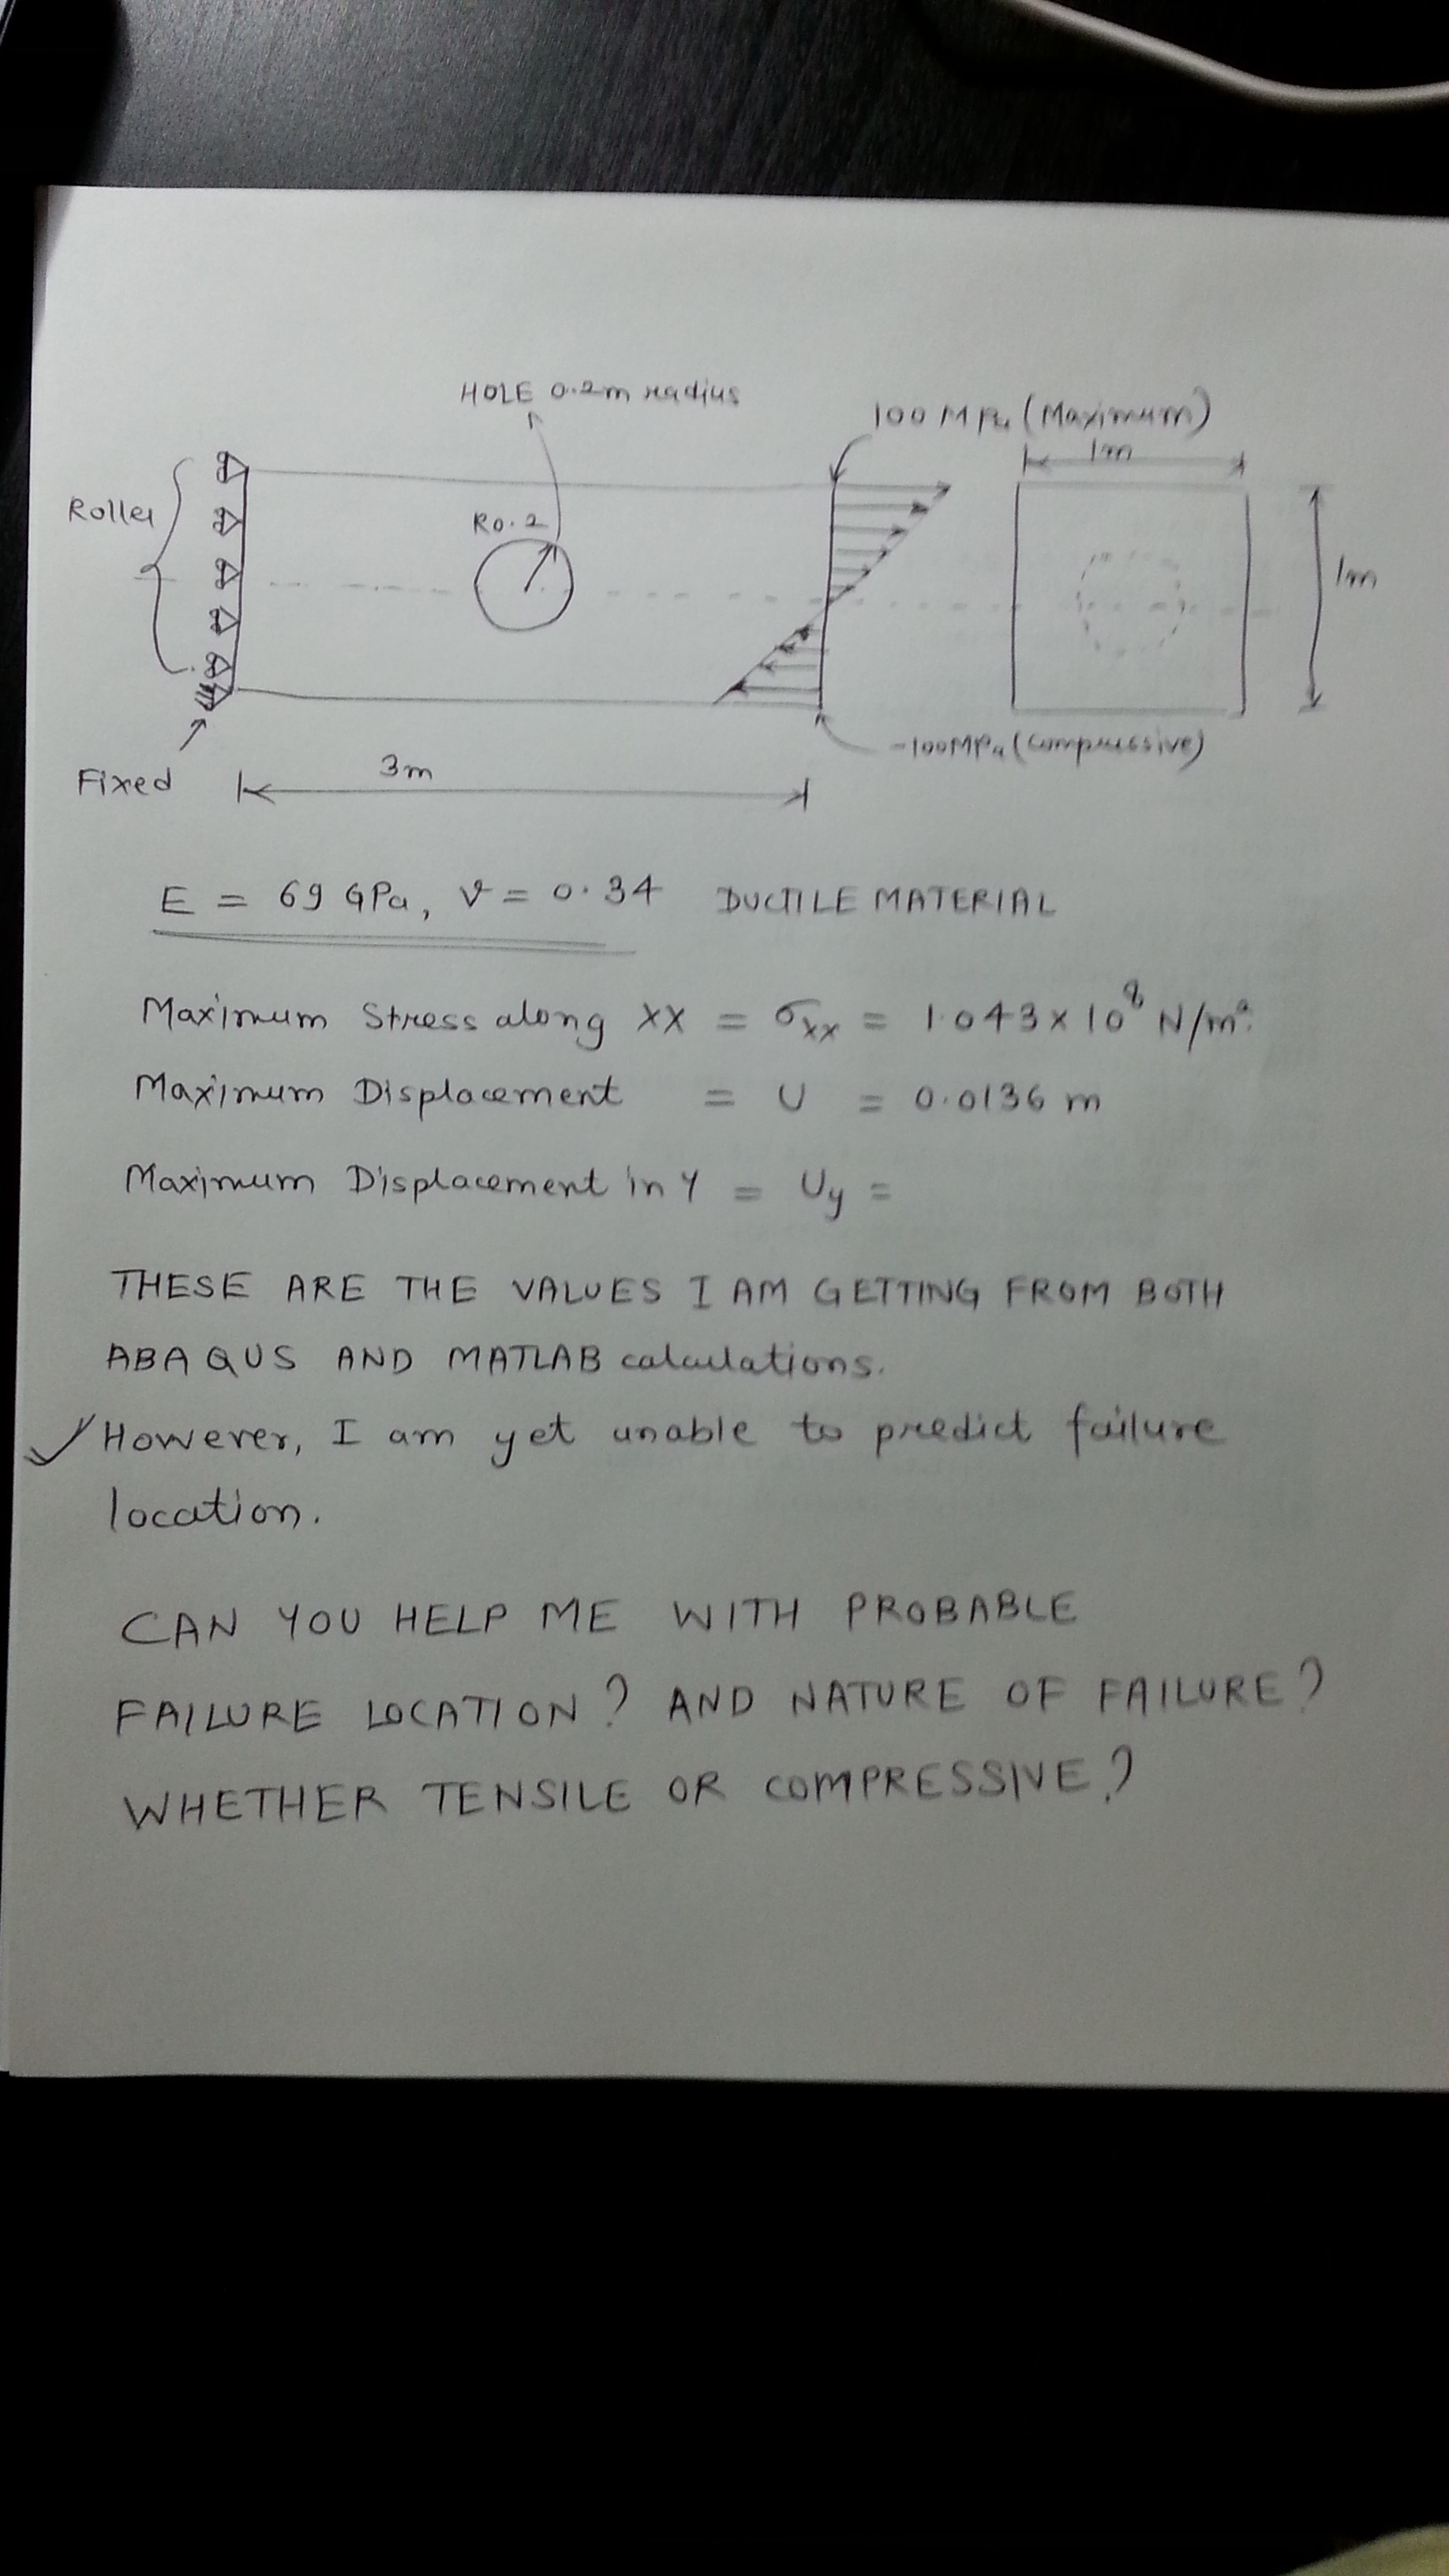 HOLE 0.2m radius
100 MPa (Maximum)
1m
Roller
R0.2
1m
-100MPa (compressive)
Fixed
3m
E = 69 GPa, ν = 0.34 DUCTILE MATERIAL
Maximum Stress along XX = σxx = 1.043 x 10⁸ N/m².
Maximum Displacement = U = 0.0136 m
Maximum Displacement in Y = Uy =
THESE ARE THE VALUES I AM GETTING FROM BOTH
ABAQUS AND MATLAB calculations.
✓ However, I am yet unable to predict failure
location.
CAN YOU HELP ME WITH PROBABLE
FAILURE LOCATION? AND NATURE OF FAILURE?
WHETHER TENSILE OR COMPRESSIVE?